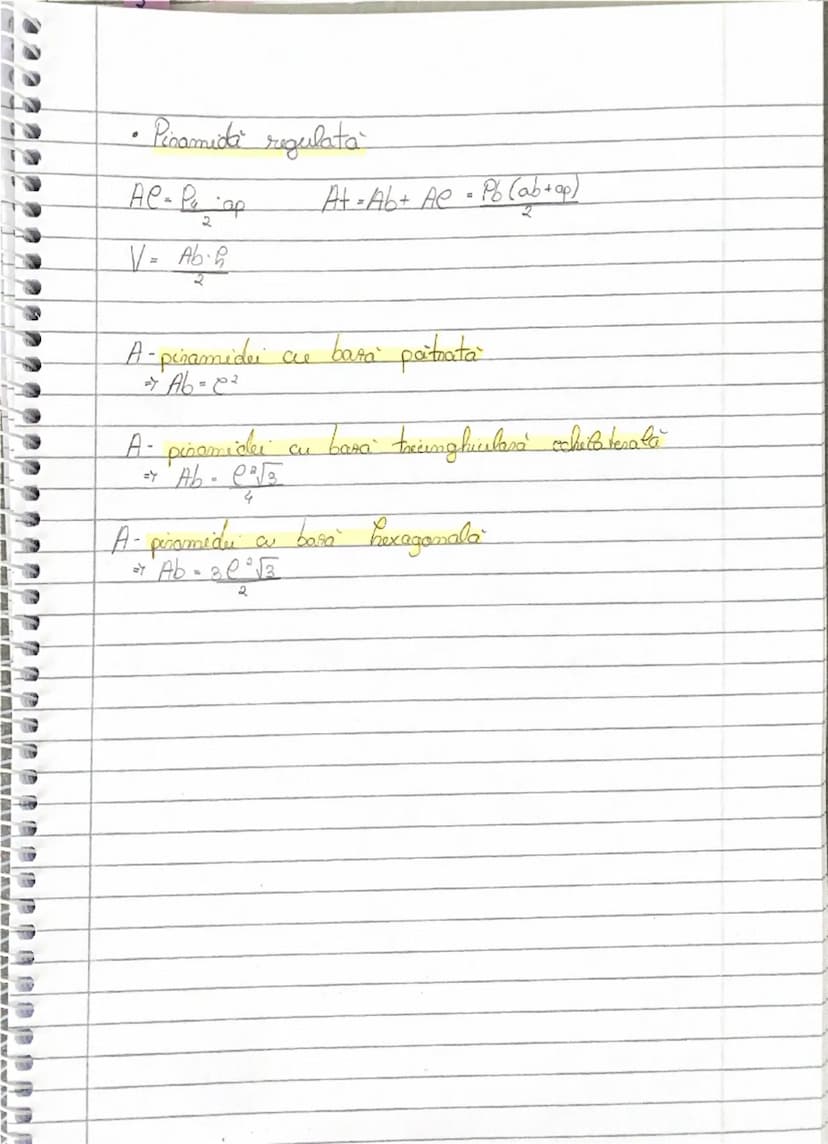 • Piramidă regulată
Al = Pb · ap / 2 At = Ab + Al = Pb (ab + ap) / 2
V = Ab · h / 2
A - piramidei cu bază pătrată
=> Ab = l²
A - piramidei cu bază triunghiulară echilaterală
=> Ab = l²√3 / 4
A - piramidei cu bază hexagonală
=> Ab = 3l²√3 / 2